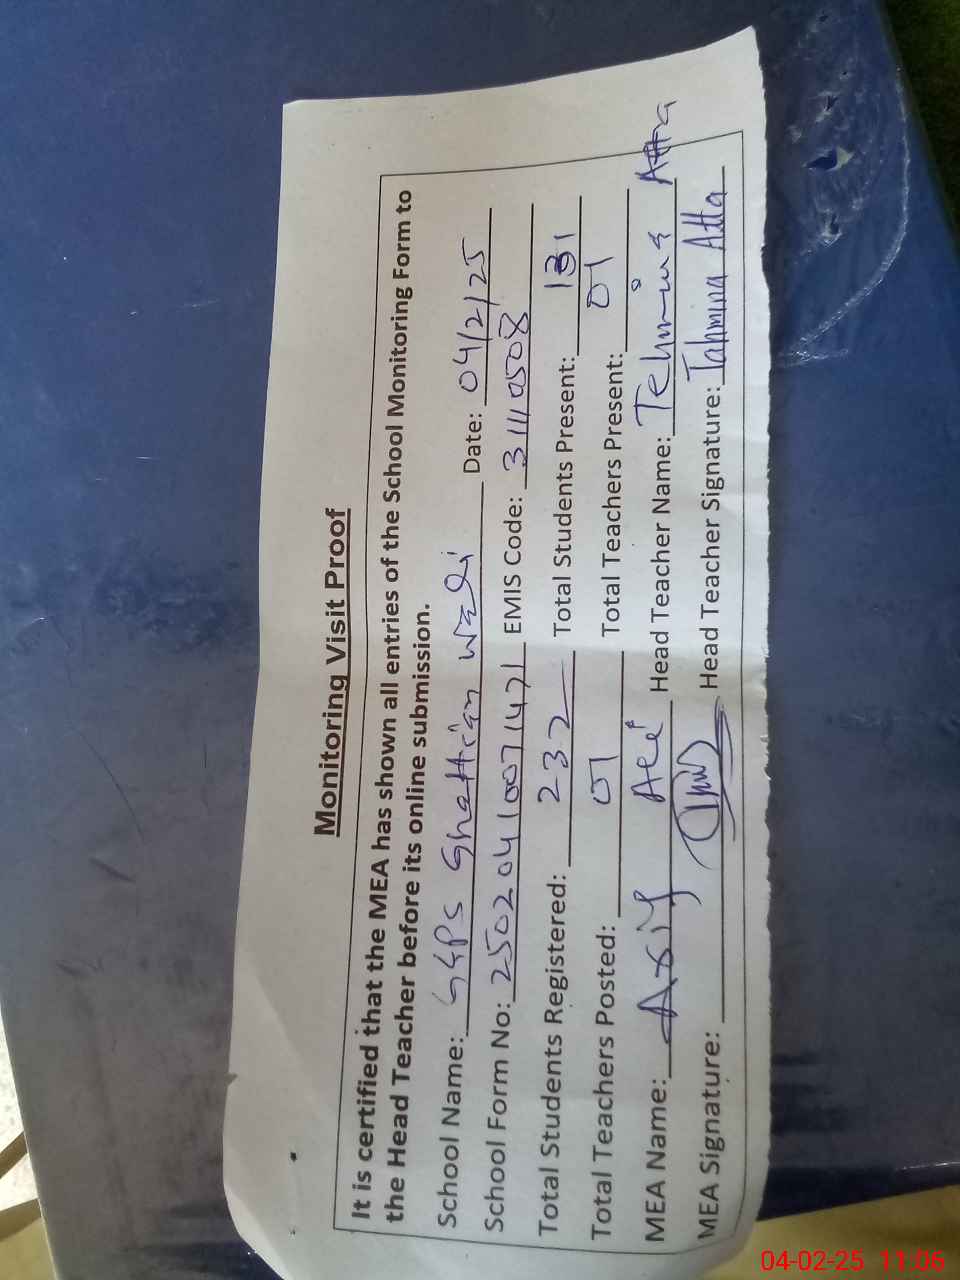 Monitoring Visit Proof
It is certified that the MEA has shown all entries of the School Monitoring Form to
the Head Teacher before its online submission.
School Name: GGPS Ghattian Wali Date: 04/2/25
School Form No: 25020410071471 EMIS Code: 31110508
Total Students Registered: 232 Total Students Present: 131
Total Teachers Posted: 01 Total Teachers Present: 01
MEA Name: Asif Ali Head Teacher Name: Tehmina Atta
MEA Signature: Head Teacher Signature: Tahmina Atta
04-02-25 11:06